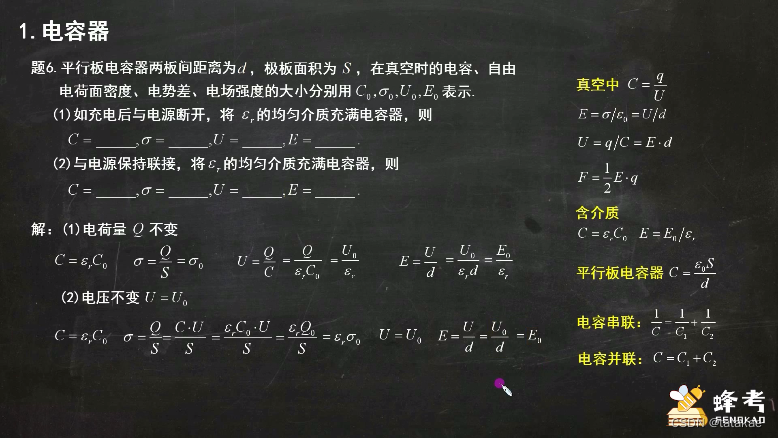 1.电容器
题6.平行板电容器两板间距离为d，极板面积为 S ，在真空时的电容、自由
电荷面密度、电势差、电场强度的大小分别用 C₀,σ₀,U₀,E₀ 表示.
(1)如充电后与电源断开，将 εᵣ的均匀介质充满电容器，则
C = _____,σ = _____,U = _____,E = _____.
(2)与电源保持联接，将εᵣ的均匀介质充满电容器，则
C = _____,σ = _____,U = _____,E = _____.
解：(1)电荷量 Q 不变
C = εᵣC₀ σ = Q/S = σ₀ U = Q/C = Q/(εᵣC₀) = U₀/εᵣ E = U/d = U₀/(εᵣd) = E₀/εᵣ
(2)电压不变 U = U₀
C = εᵣC₀ σ = Q/S = C·U/S = εᵣC₀·U/S = εᵣQ₀/S = εᵣσ₀ U = U₀ E = U/d = U₀/d = E₀
真空中 C = q/U
E = σ/ε₀ = U/d
U = q/C = E·d
F = 1/2 E·q
含介质
C = εᵣC₀ E = E₀/εᵣ
平行板电容器 C = ε₀S/d
电容串联： 1/C = 1/C₁ + 1/C₂
电容并联： C = C₁ + C₂
蜂考
FENGKAO